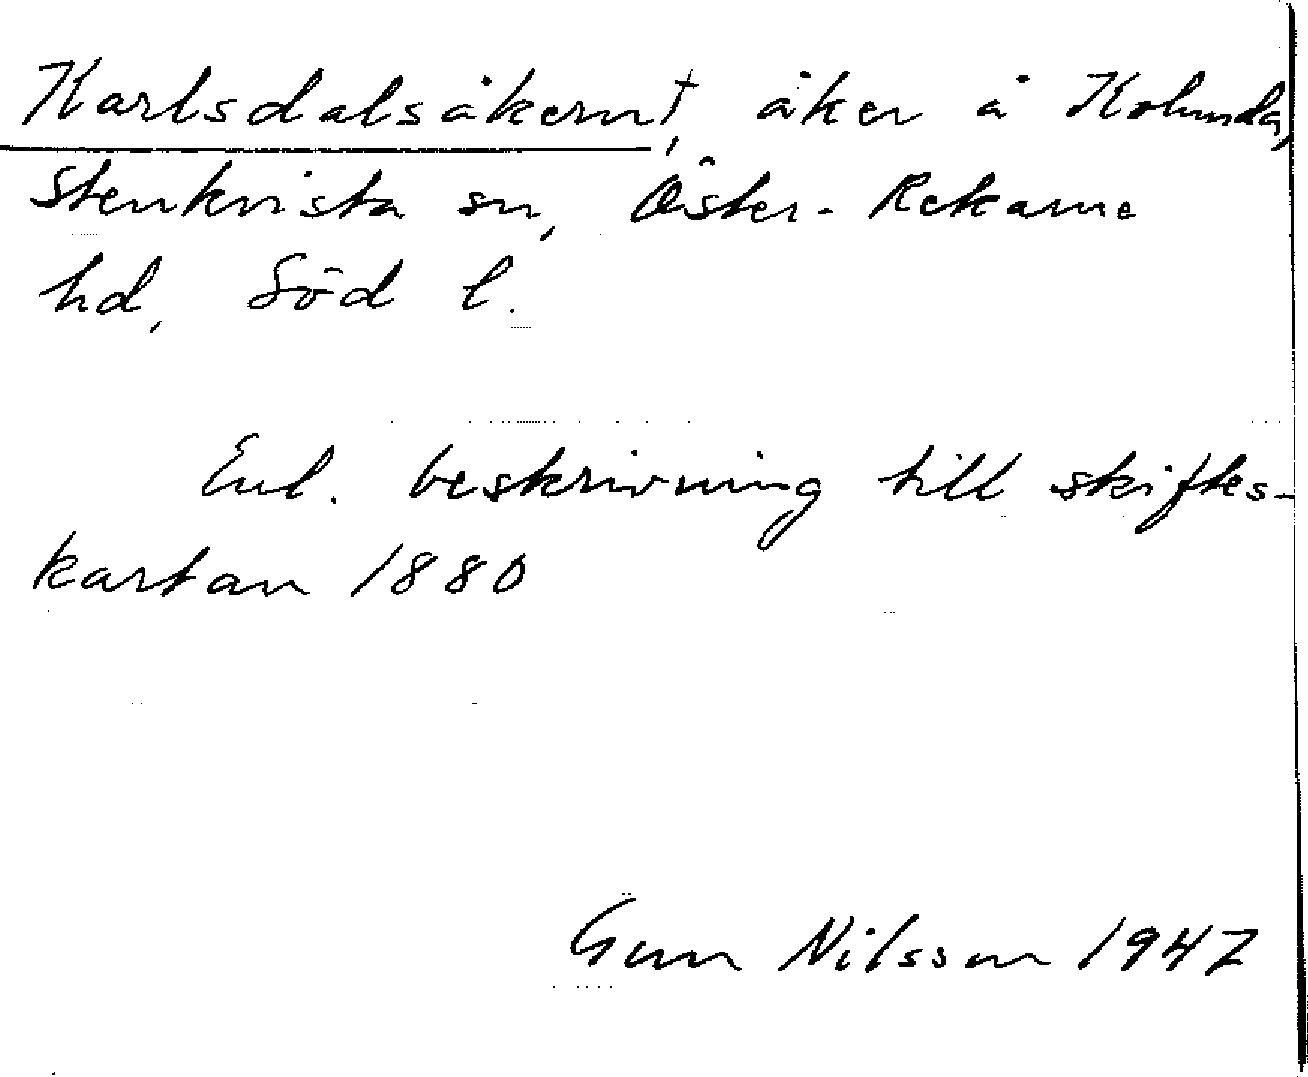 Karlsdalsåkern†, åker å Kolunda,
Stenkvista sn, Öster-Rekarne
hd, Söd l.
Enl. beskrivning till skiftes-
kartan 1880
Gun Nilsson 1947